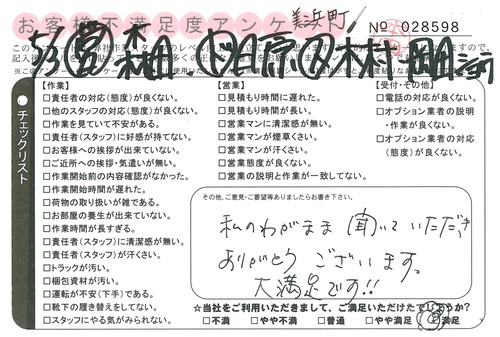 お客様不満足度アンケ
美浜町
No 028598
記入後
チェックリスト
【作業】
□責任者の対応（態度）が良くない。
□他のスタッフの対応（態度）が良くない。
□作業を見ていて不安がある。
□責任者（スタッフ）に好感が持てない。
□お客様への挨拶が出来ていない。
□ご近所への挨拶・気遣いが無い。
□作業開始前の内容確認がなかった。
□作業開始時間が遅れた。
□荷物の取り扱いが雑である。
□お部屋の養生が出来ていない。
□作業時間が長すぎる。
□責任者（スタッフ）に清潔感が無い。
□責任者（スタッフ）が汗くさい。
□トラックが汚い。
□梱包資材が汚い。
□運転が不安（下手）である。
□靴下の履き替えをしてない。
□スタッフにやる気がみられない。
【営業】
□見積もり時間に遅れた。
□見積もり時間が長い。
□営業マンに清潔感が無い。
□営業マンが煙草くさい。
□営業マンが汗くさい。
□営業態度が良くない。
□営業の説明と作業が一致してない。
【受付・その他】
□電話の対応が良くない。
□オプション業者の説明
・作業が良くない。
□オプション業者の対応
（態度）が良くない。
その他、ご意見・ご要望等ありましたらお書き下さい。
私のわがまま聞いていただき
ありがとうございます。
大満足です!!
☆当社をご利用いただきまして、ご満足いただけたでしょうか？
□不満 □やや不満 □普通 □やや満足 満足